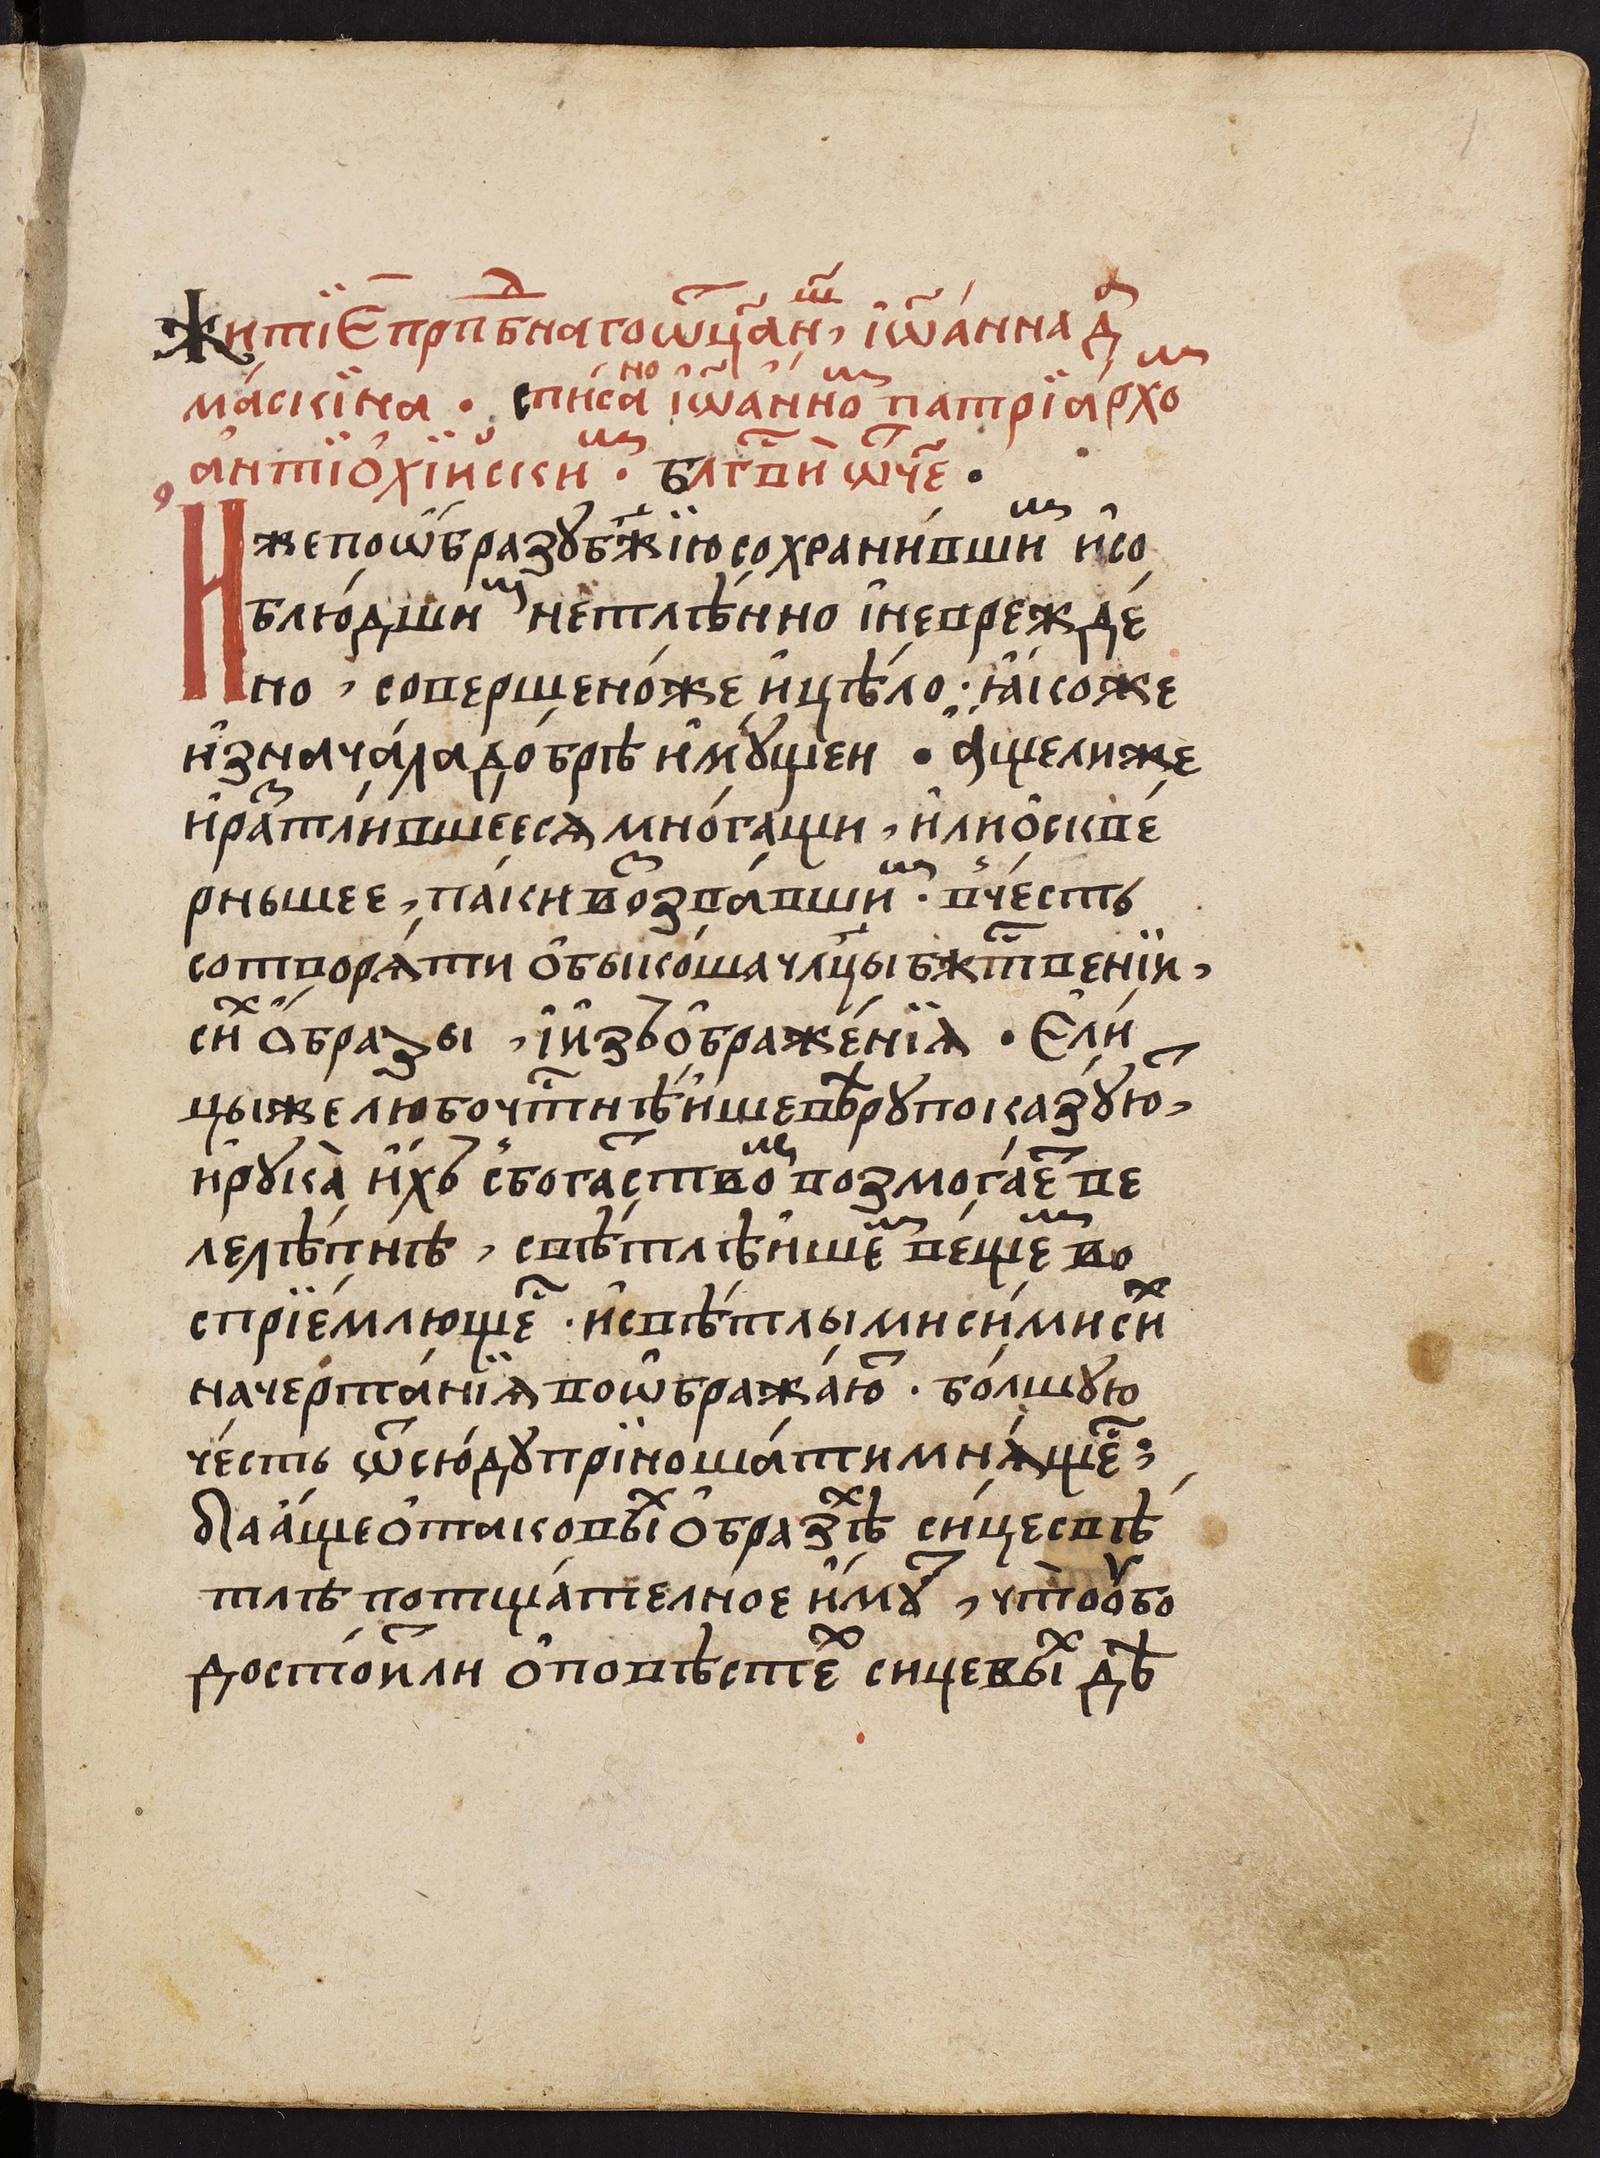 Житїе прпⷣбнаго ѿца́ нш҃, іѡ҆а́нна да
ма́скїна · спи́сано іѡ҆а́нноⷨ патрїа́рхоⷨ
а҆нтїо҆хі́йскиⷨ · блг҃ви́ ѿч҃е ·
Иже по ѡ҆́бразꙋ бж҃їю сохрани́вшиⷨ и҆ со
блю́дшиⷨ нетлѣ́нно і҆ невре́жде́
но , соверше́но же и҆ цѣ́ло · ꙗ҆́коже
и҆з нача́ла до́брѣ и҆мꙋ́щеи · а҆́ще ли же
и҆ растли́вшеесѧ мно́гащи , и҆ли о҆скве́
рньшее , па́ки воззва́вшиⷨ · в че́сть
сотворѧ́ти о҆быко́ша чл҃цы бжⷭ҇твенїи ,
сиⷯ о҆́бразы , і҆ и҆зъѡ҆браже́нїѧ · Е҆ли́
цы же любочⷭ҇тнѣ́йше вѣ́рꙋ показꙋ́юⷮ ,
и҆ рꙋка̀ и҆́хъ с бога́ствоⷨ возмога́еⷮ ве
лелѣ́пнѣ , свѣтлѣ́йшеⷨ ве́щеⷨ во
спрїе́млющеⷭ · и҆ свѣ́тлыми си́ми сиⷯ
начерта́нїѧ воѡ҆бража́юⷮ · бо́лшꙋю
че́сть ѿсю́дꙋ прїноша́ти мнѧ́щеⷭ ,
Да а҆́ще о҆ такоVыⷯ о҆́бразѣⷯ си́це свѣ
тлѣ потща́телное и҆́мꙋⷮ , что̀ ᲂу҆́бо
досто́йⷮ ли о҆ по́вѣстеⷯ сицевыⷯ дѣ